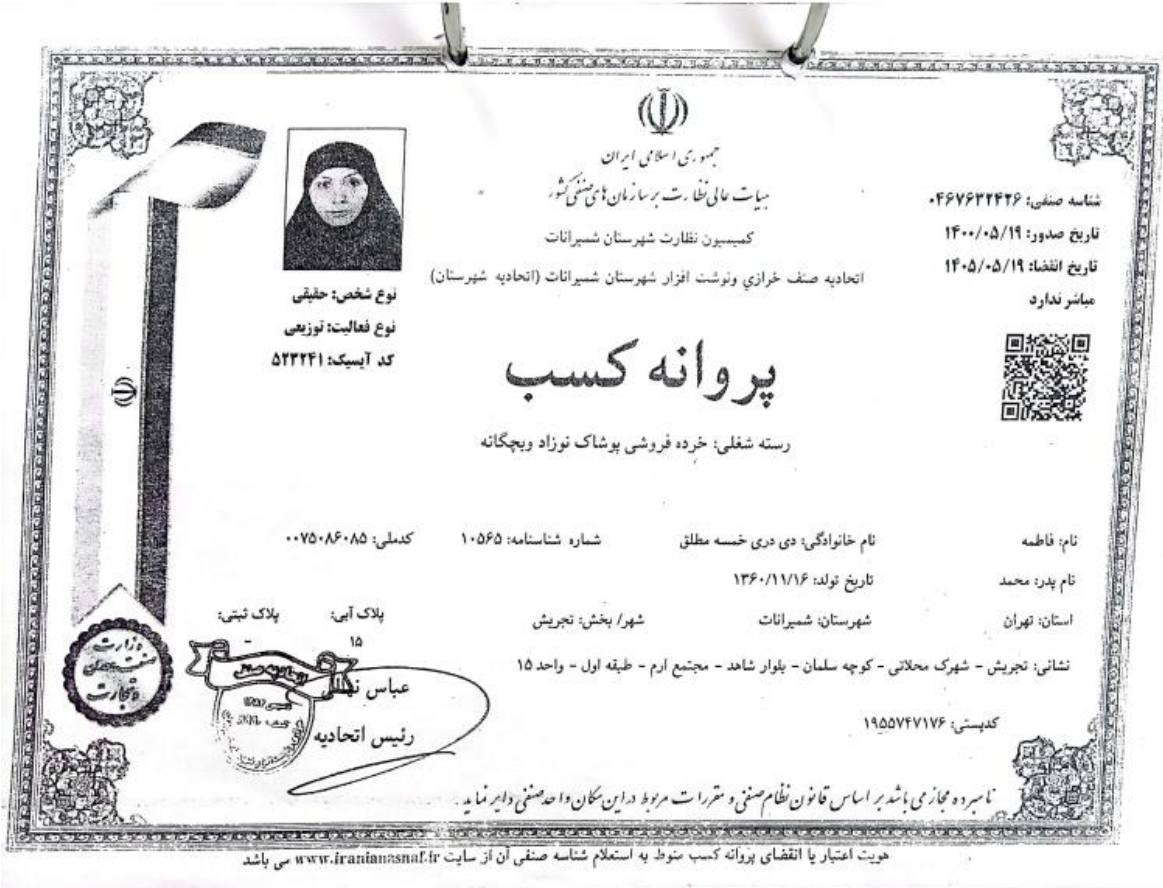 جمهوری اسلامی ایران
هیات عالی نظارت بر سازمان های صنفی کشور
کمیسیون نظارت شهرستان شمیرانات
اتحادیه صنف خرازي ونوشت افزار شهرستان شمیرانات (اتحادیه شهرستان)
شناسه صنفی: ۰۴۶۷۶۳۲۴۲۶
تاریخ صدور: ۱۴۰۰/۰۵/۱۹
تاریخ انقضا: ۱۴۰۵/۰۵/۱۹
مباشر ندارد
نوع شخص: حقیقی
نوع فعالیت: توزیعی
کد آیسیک: ۵۲۳۲۴۱
پروانه کسب
رسته شغلی: خرده فروشی پوشاک نوزاد وبچگانه
نام: فاطمه نام خانوادگی: دی دری خمسه مطلق شماره شناسنامه: ۱۰۵۶۵ کدملی: ۰۰۷۵۰۸۶۰۸۵
نام پدر: محمد تاریخ تولد: ۱۳۶۰/۱۱/۱۶
استان: تهران شهرستان: شمیرانات شهر/ بخش: تجریش پلاک آبی: پلاک ثبتی:
۱۵ -
نشانی: تجریش - شهرک محلاتی - کوچه سلمان - بلوار شاهد - مجتمع ارم - طبقه اول - واحد ۱۵
کدپستی: ۱۹۵۵۷۴۷۱۷۶
عباس
رئیس اتحادیه
وزارت
صنعت معدن
و تجارت
نامبرده مجاز می باشد بر اساس قانون نظام صنفی و مقررات مربوط در این مکان واحد صنفی دایر نماید.
هویت اعتبار یا انقضای پروانه کسب منوط به استعلام شناسه صنفی آن از سایت www.iranianasnaf.ir می باشد